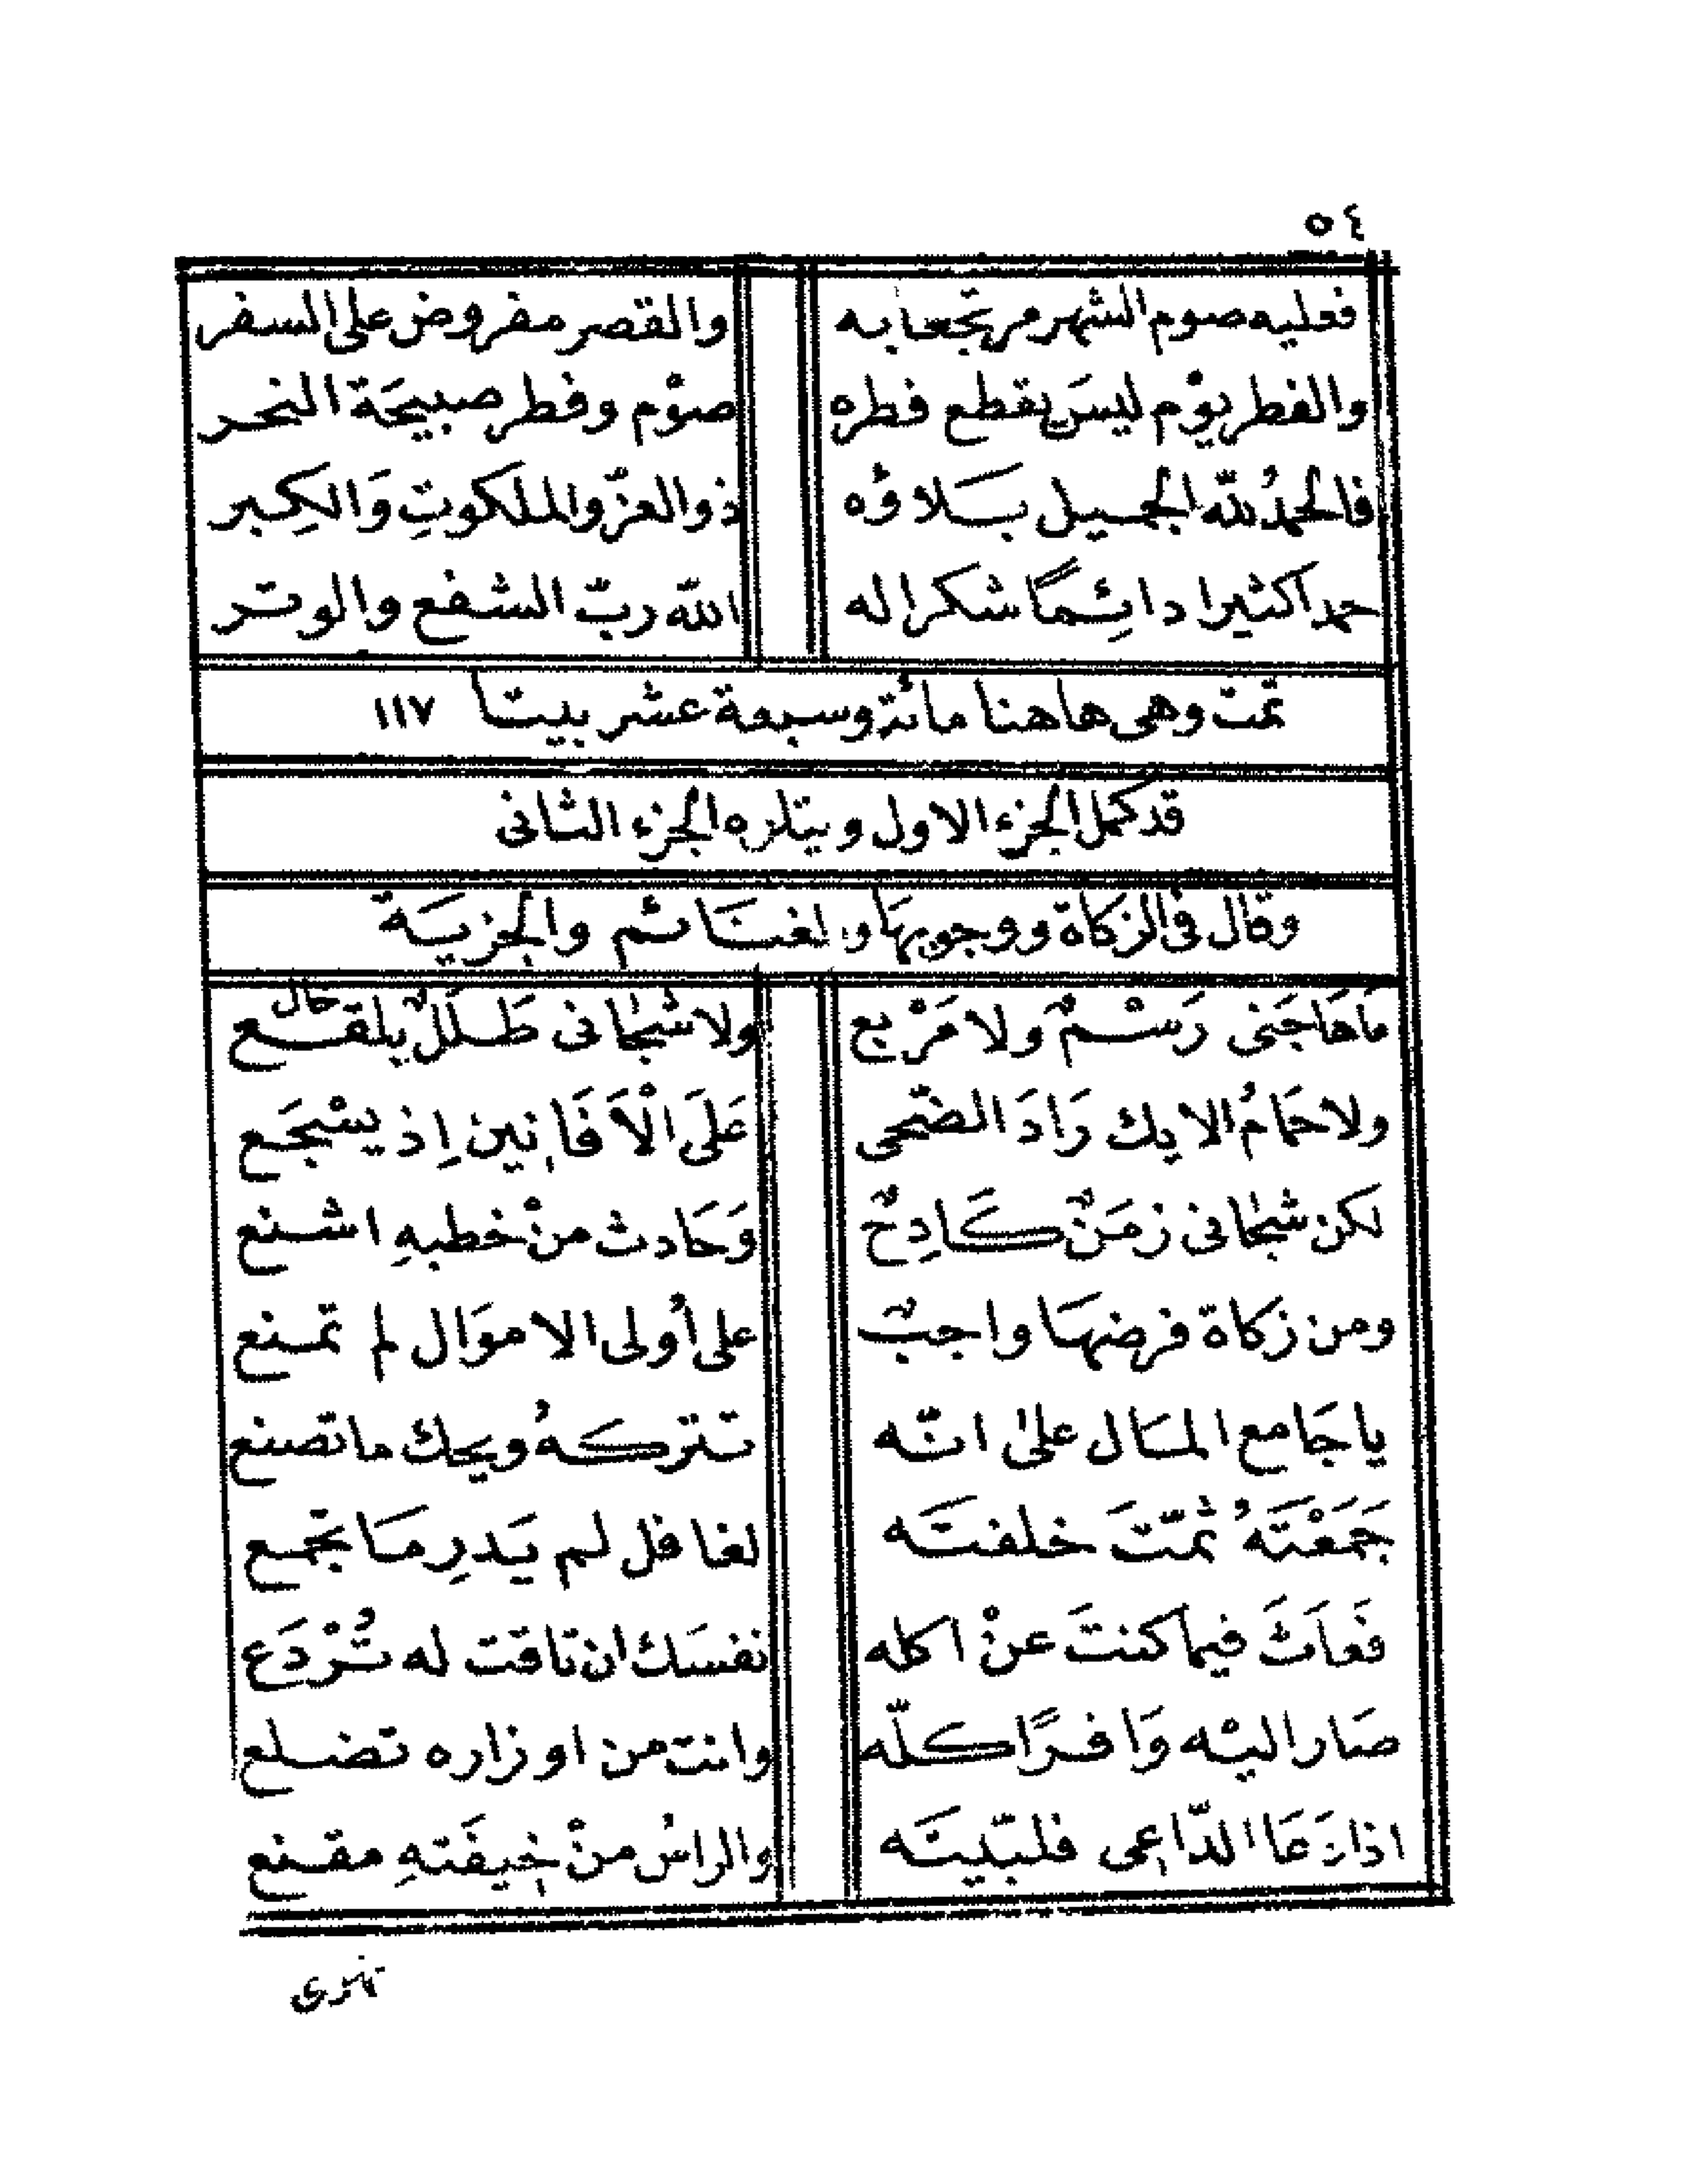 ٥٤
فعليه صوم الشهر مرتجعا به والقصر مفروض على السفر
والفطر يوْم ليسَ يقطع فطره صوْم وفطر صبيحَة النحر
فالحمدُ للّه الجميل بَلاؤه ذو العزّ والملكوتِ وَالكِبر
حمدا كثيرا دائِمًا شكرا له اللّه ربّ الشفع والوتر
تمّت وهى هاهنا مائة وسبعة عشر بيتا ١١٧
قد كمل الجزء الاول ويتلوه الجزء الثانى
وقال فى الزكاة ووجوبهَا والغنَائم والجزيَة
مَا هَاجَنى رَسْمٌ ولا مَرْبع ولا شجَانى طَلَلٌ بلقع خال
ولا حَمَامُ الايك رَادَ الضّحى عَلَى الْأَفَانين إذ يسْجَع
لكن شجَانى زمَنٌ كَادِحٌ وَحَادث منْ خطبهِ اشنع
ومن زكاة فرضهَا واجبٌ على أولى الاموَال لم تمنع
يا جَامع المَال على انّه تتركهُ ويحك ما تصنع
جَمَعْتَهُ ثمّتَ خلفتَه لغافل لم يَدرِ مَا تجمع
فَعَاثَ فيما كنتَ عنْ اكله نفسَك ان تاقت له تُرْدَع
صَار اليْه وَافرًا كلّه وانت من اوزاره تضلع
اذا دَعَا الدّاعِى فلبّينَه والراسُ منْ خِيفَتهِ مقنع